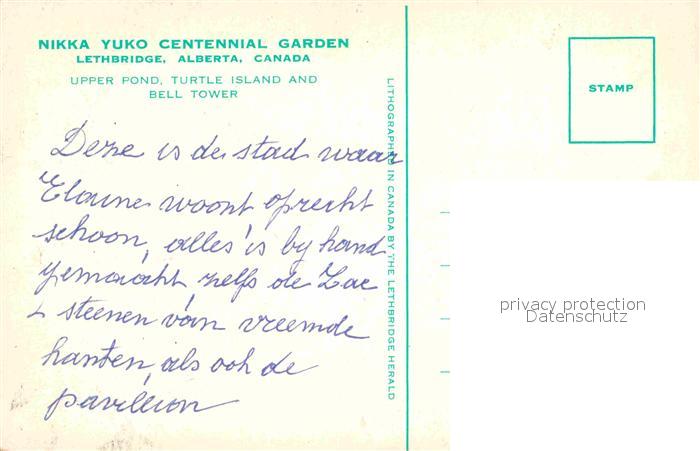 NIKKA YUKO CENTENNIAL GARDEN
LETHBRIDGE, ALBERTA, CANADA
UPPER POND, TURTLE ISLAND AND
BELL TOWER
STAMP
LITHOGRAPHED IN CANADA BY THE LETHBRIDGE HERALD
Deze is de stad waar
Elaine woont oprecht
schoon, alles is by hand
gemaakt, zelfs de
steenen van vreemde
kanten, als ook de
pavilion
privacy protection
Datenschutz